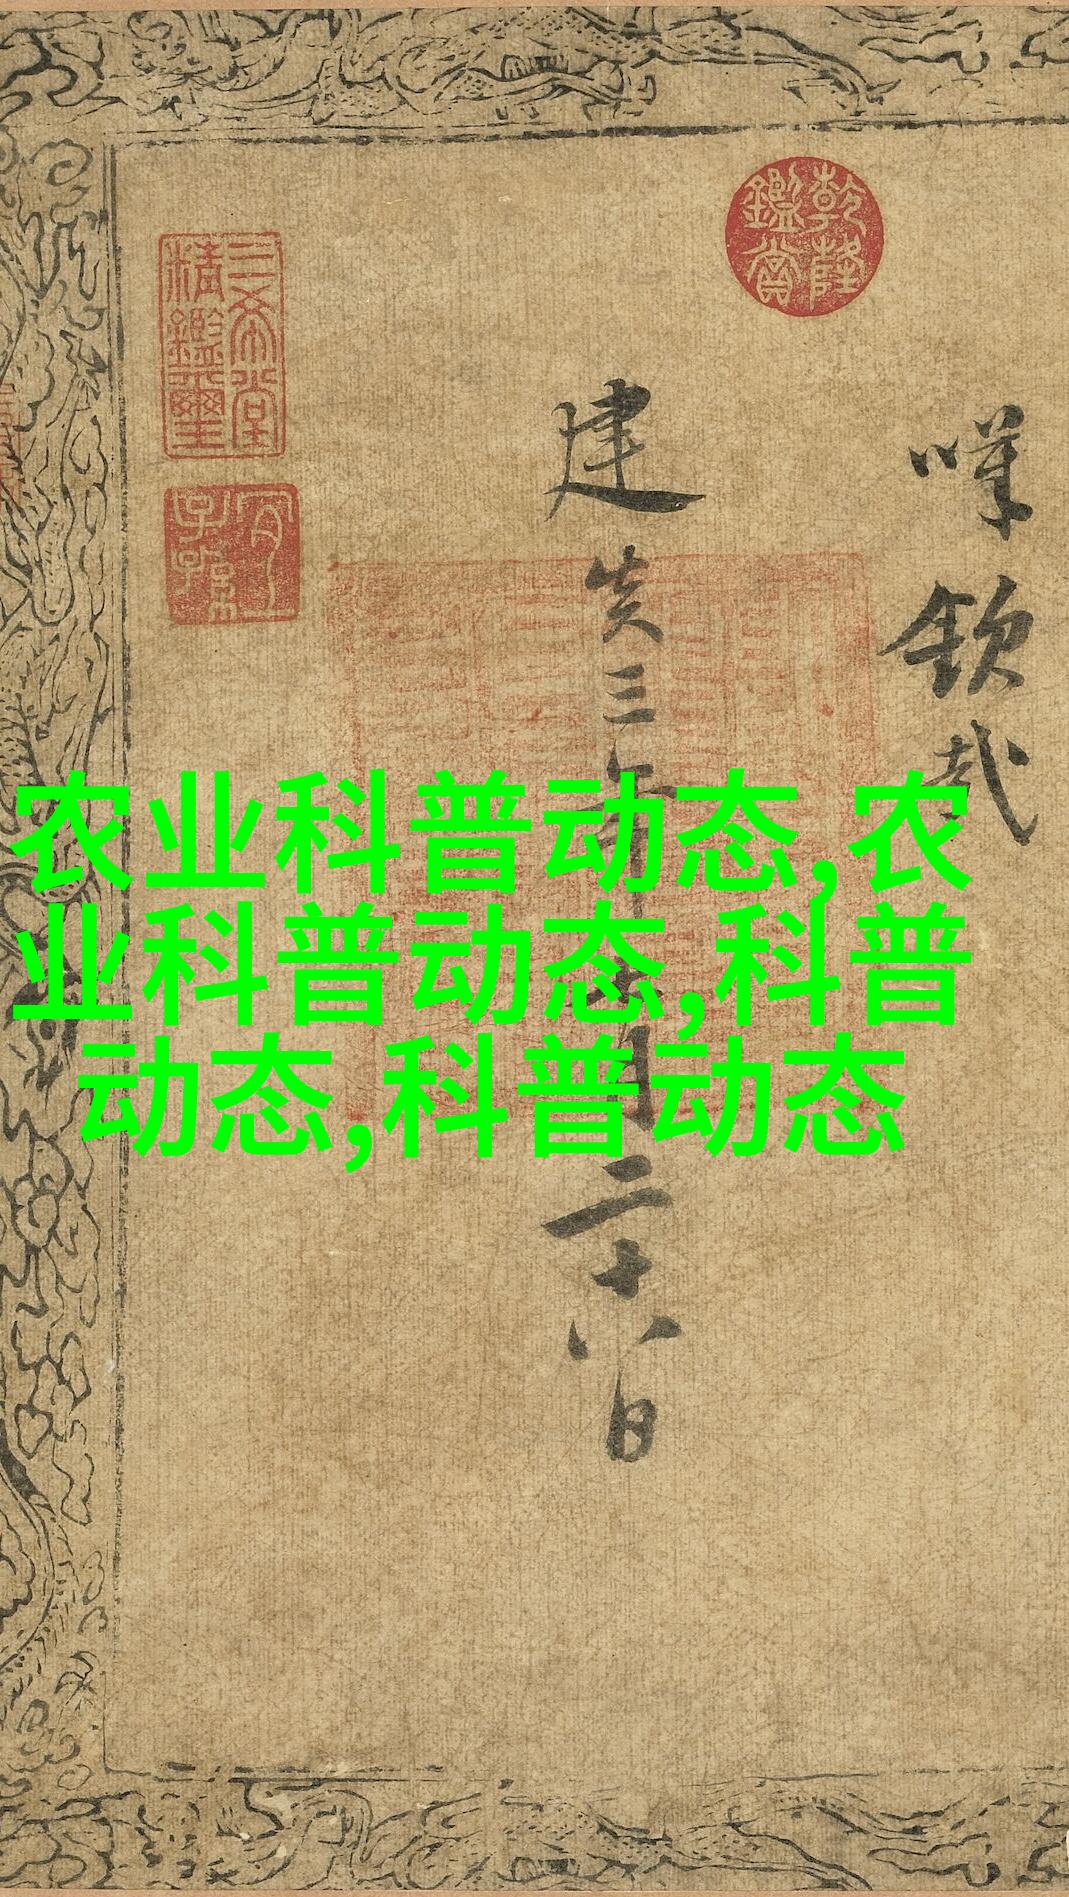 乾隆鑑賞
欽哉
建炎三年
月二十八日
三希堂精鑑璽
宜子孫
农业科普动态,农
业科普动态,科普
动态,科普动态